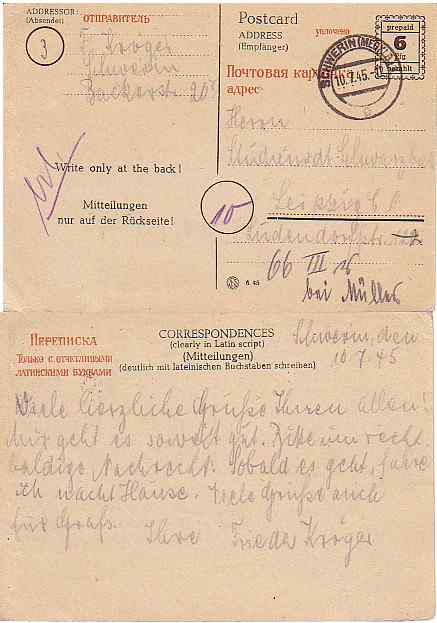 ADDRESSOR:
(Absender)
ОТПРАВИТЕЛЬ
3
F. Kröger
Schwerin
Postcard
ADDRESS
(Empfänger)
уплочено
prepaid
6
Pfg
bezahlt
SCHWERIN (MECKL)
10.7.45.
Почтовая карточка
адрес
Herrn
Studienrat
Write only at the back!
Mitteilungen
nur auf der Rückseite!
10
Leipzig C
66 III
bei Müller
6. 45
Переписка
Только с отчетливыми
латинскими буквами
CORRESPONDENCES
(clearly in Latin script)
(Mitteilungen)
(deutlich mit lateinischen Buchstaben schreiben)
Schwerin, den
10.7.45
Viele herzliche Grüße Ihnen allen!
Mir geht es soweit gut. Bitte um recht
baldige Nachricht. Sobald es geht, fahre
ich nach Hause. Viele Grüße auch
für Groß.
Ihre Frieda Kröger